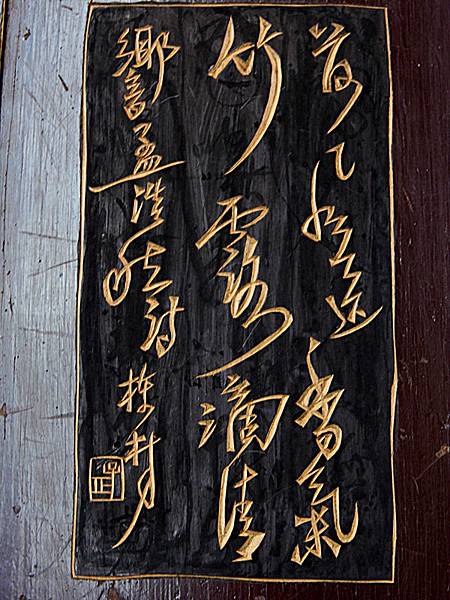 荷風送香氣
竹露滴清
響孟浩然詩